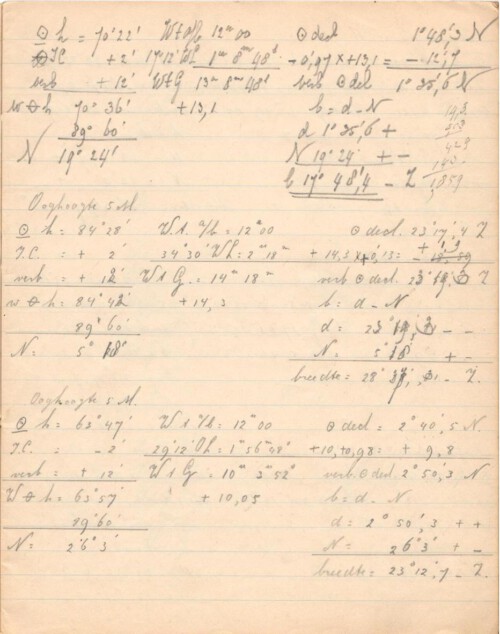 ☉ h = 70° 22' W t o/b 12 u 00 ☉ decl 1° 48',3 N
I.C. + 2' 17° 12' WL 1 u 8 m 48 s - 0',97 x + 13,1 = - 12',7
verb + 12' W t G 13 u 8 m 48 s verb ☉ decl 1° 35',6 N
w ⊖ h 70° 36' + 13,1 b = d - N
89° 60' d 1° 35',6 +
N 19° 24' N 19° 24' + -
b 17° 48',4 - Z
1859
Ooghoogte 5 M.
☉ h = 84° 28' W t. o/b = 12 u 00 ☉ decl. 23° 17',4 Z
I.C. = + 2' 34° 30' WL = 2 u 18 m + 14,3 x + 0,15 =
verb = + 12' W t G. = 14 u 18 m verb ☉ decl. 23° Z
w ⊖ h = 84° 42' + 14,3 b = d - N
89° 60' d = 23° - -
N = 5° 18' N = 5° 18' + -
breedte = 28° - Z.
Ooghoogte 5 M.
☉ h = 63° 47' W t o/b = 12 u 00 ☉ decl = 2° 40',5 N.
I.C. = - 2' 29° 12' OL = 1 u 56 m 48 s + 10, + 0,98 = + 9,8
verb = + 12' W t G = 10 u 3 m 52 s verb. ☉ decl. 2° 50',3 N
W ⊖ h = 63° 57' + 10,05 b = d - N
89° 60' d = 2° 50',3 + +
N = 26° 3' N = 26° 3' + -
breedte = 23° 12',7 - Z.